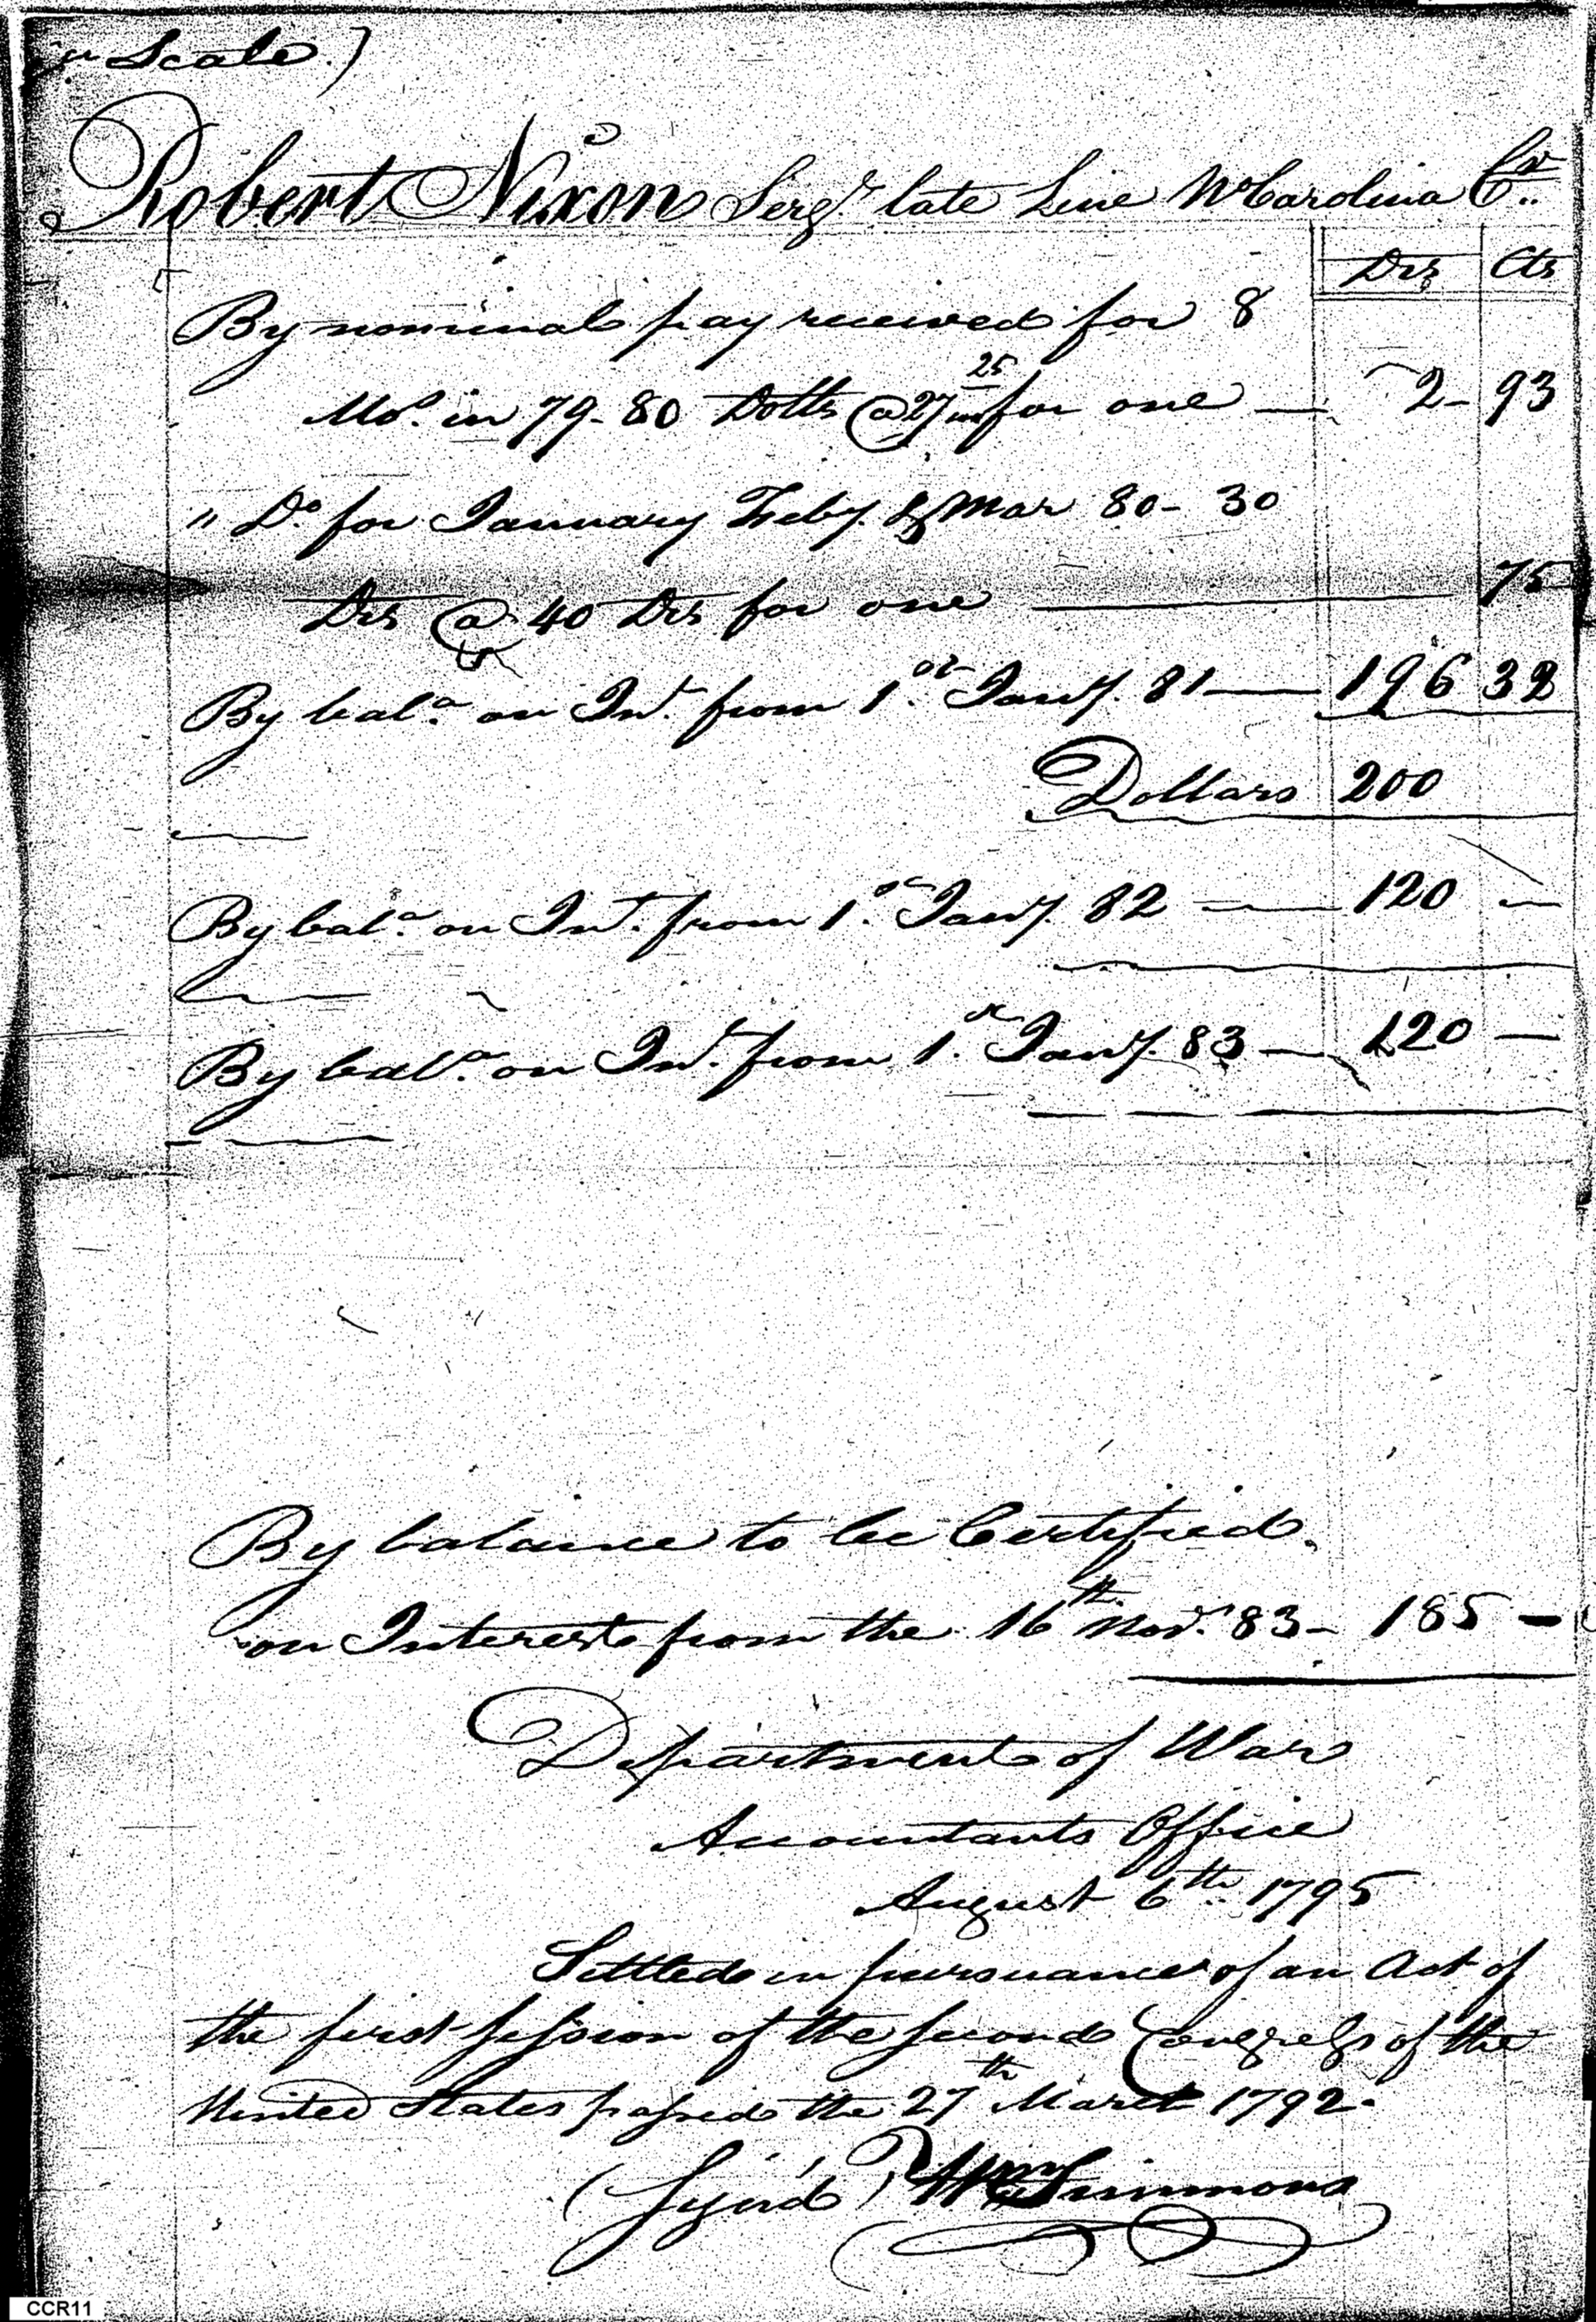 Scale.)
Robert Nixon Sergt. late Line No Carolina Cr..
Drs Cts
By nominal pay received for 8
Mos. in 79 - 80 Dolls @ 27 25/100 for one — 2 - 93
" Do. for January Feby. & Mar 80 - 30
Drs @ 40 Drs for one — 75
By bala. on Int. from 1st. Jany. 81 — 196 32
Dollars 200
By bala. on Int. from 1st. Jany. 82 — 120 —
By bala. on Int. from 1st. Jany. 83 — 120 —
By balance to be Certified.
on Interest from the 16th Novr. 83 - 185 -
Department of War
Accountants Office
August 6th 1795
Settled in pursuance of an Act of
the first session of the second Congress of the
United States passed the 27th March 1792.
(Sign'd) Wm Simmons
CCR11